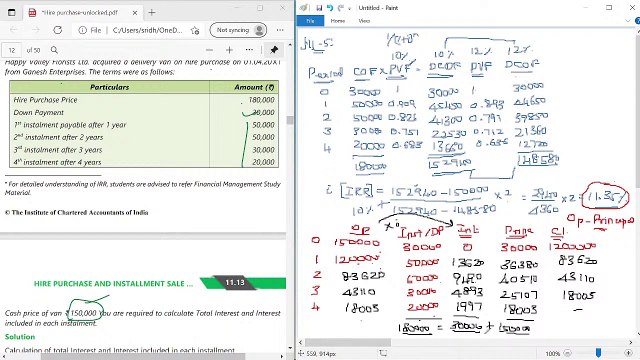 "Hire purchase-unlocked.pdf"
C:/Users/sridh/OneD...
Not syncing
12 of 50
Happy Valley Florists Ltd. acquired a delivery van on hire purchase on 01.04.20X1
from Ganesh Enterprises. The terms were as follows:
Particulars Amount (₹)
Hire Purchase Price 180,000
Down Payment 30,000
1st instalment payable after 1 year 50,000
2nd instalment after 2 years 50,000
3rd instalment after 3 years 30,000
4th instalment after 4 years 20,000
*For detailed understanding of IRR, students are advised to refer Financial Management Study
Material.
© The Institute of Chartered Accountants of India
HIRE PURCHASE AND INSTALLMENT SALE ... 11.13
Cash price of van ₹150,000 You are required to calculate Total Interest and Interest
included in each instalment.
Solution
Calculation of total Interest and Interest included in each instalment
Untitled - Paint
File Home View
10% 10% 12% 12%
COF x PVF DCOF PVF DCOF
0 30000 1 30000 1 30000
1 50000 0.909 45450 0.893 44650
2 50000 0.826 41300 0.797 39850
3 30000 0.751 22530 0.712 21360
4 20000 0.683 13660 0.636 12720
180000 152940 148580
i [IRR] = 152940 - 150000 x 2 = 2940 x 2 = 11.35%
10% + 152940 - 148580 4360
OP - Principal
OP x i Inst/DP Int Prin CL
0 150000 30000 0 30000 120000
1 120000 50000 13620 36380 83620
2 83620 50000 9490 40510 43110
3 43110 30000 4893 25107 18003
4 18003 20000 1997 18003 -
180000 = 30000 + 150000
559, 914px
100%